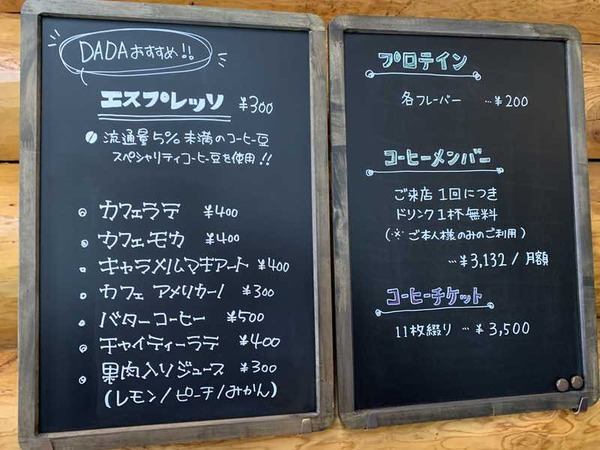 DADAおすすめ!!
エスプレッソ ¥300
流通量5%未満のコーヒー豆
スペシャリティコーヒー豆を使用!!
カフェラテ ¥400
カフェモカ ¥400
キャラメルマキアート ¥400
カフェ アメリカーノ ¥300
バターコーヒー ¥500
チャイティーラテ ¥400
果肉入りジュース ¥300
(レモン/ピーチ/みかん)
プロテイン
各フレーバー …¥200
コーヒーメンバー
ご来店1回につき
ドリンク1杯無料
(※ご本人様のみのご利用)
…¥3,132/月額
コーヒーチケット
11枚綴り…¥3,500